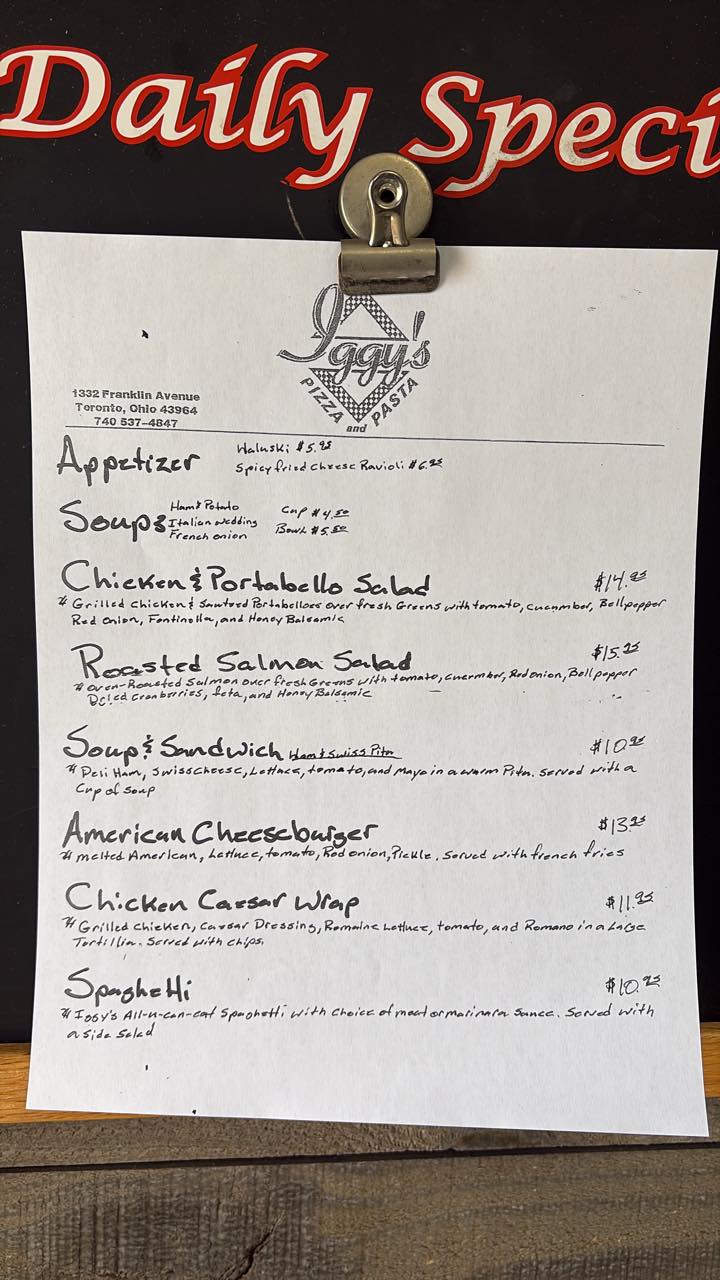 Daily Speci
Iggy's
PIZZA and PASTA
1332 Franklin Avenue
Toronto, Ohio 43964
740 537-4847
Appetizer
Haluski $5.95
Spicy fried Cheese Ravioli $6.95
Soups
Ham & Potato
Italian wedding
French onion
Cup $4.50
Bowl $5.50
Chicken & Portabello Salad $14.95
* Grilled Chicken & Sauteed Portabellos over fresh Greens with tomato, cucumber, Bell pepper
Red onion, Fontinella, and Honey Balsamic
Roasted Salmon Salad $15.95
* oven-Roasted Salmon over fresh Greens with tomato, cucumber, Red onion, Bell pepper
Dried Cranberries, feta, and Honey Balsamic
Soup & Sandwich Ham & Swiss Pita $10.95
* Deli Ham, Swiss Cheese, Lettuce, tomato, and Mayo in a warm Pita. Served with a
Cup of Soup
American Cheeseburger $13.95
* melted American, Lettuce, tomato, Red onion, Pickle. Served with french fries
Chicken Caesar Wrap $11.95
* Grilled Chicken, Caesar Dressing, Romaine Lettuce, tomato, and Romano in a Large
Tortillia. Served with chips.
Spaghetti $10.95
* Iggy's All-u-can-eat Spaghetti with choice of meat or marinara Sauce. Served with
a Side Salad